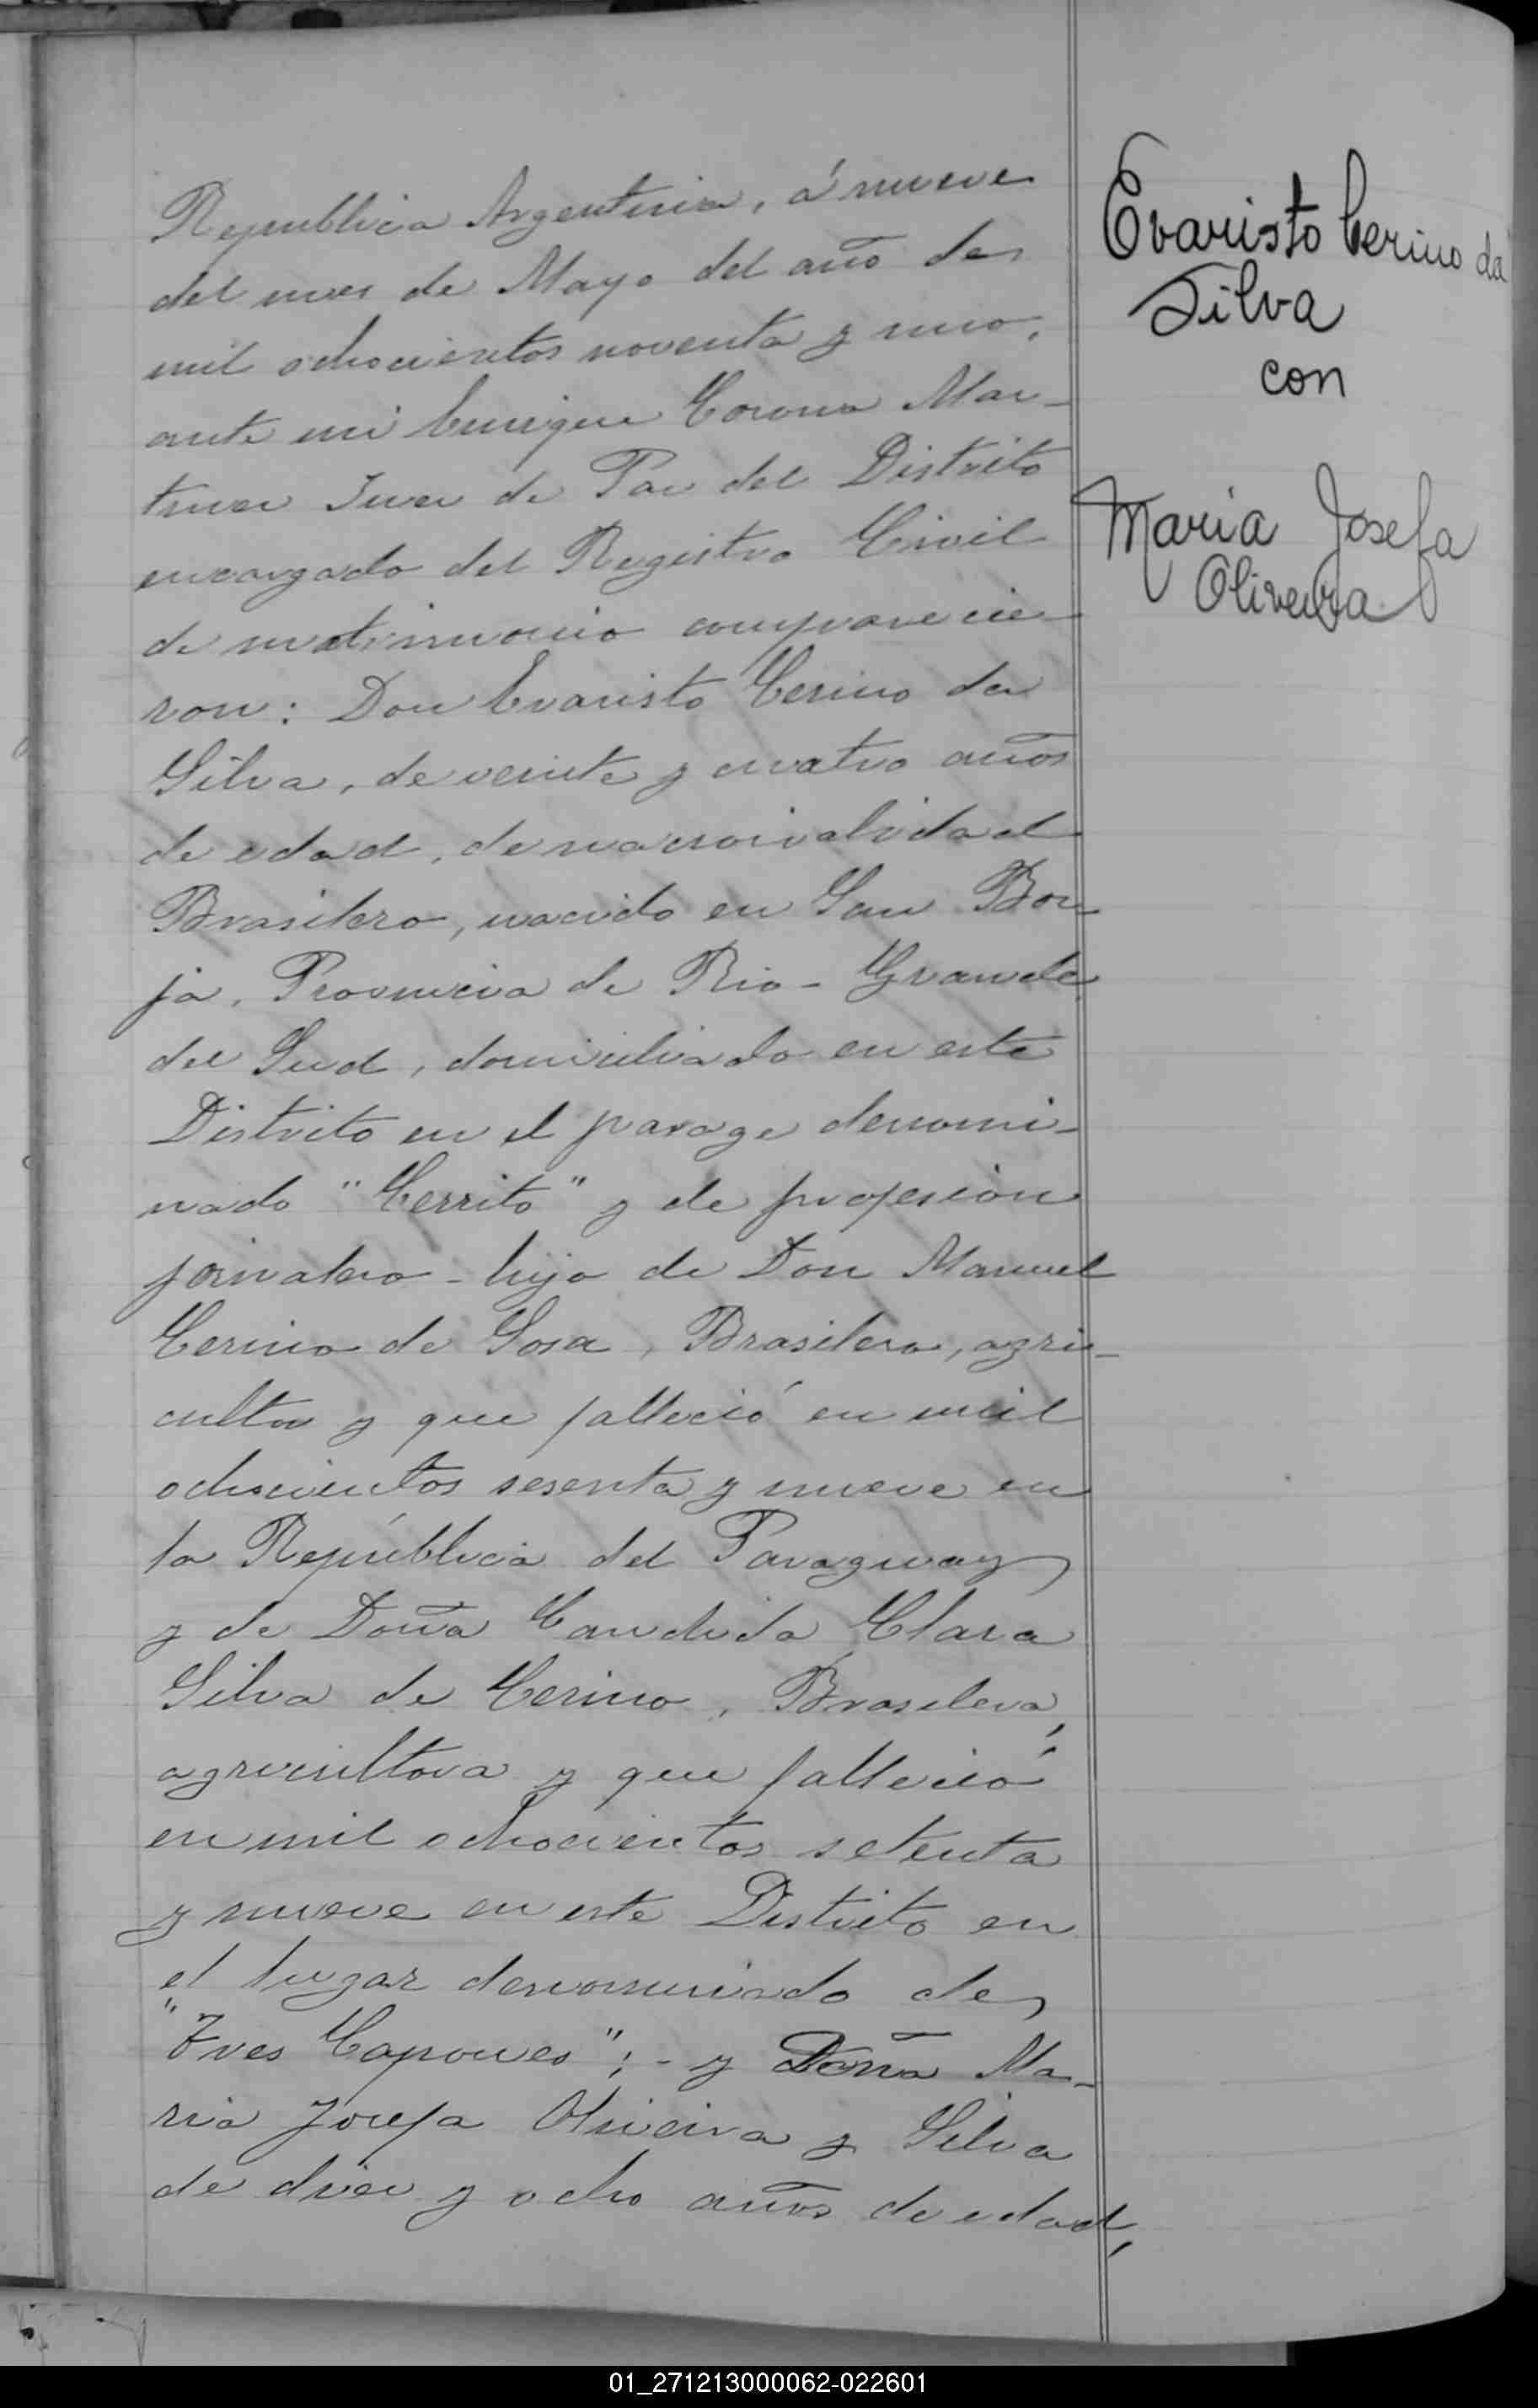 Republica Argentina, á nueve
del mes de Mayo del año de
mil ochocientos noventa y uno,
ante mi Enrique Corona Mar-
tinez Juez de Paz del Distrito
encargado del Registro Civil
de matrimonio comparecie-
ron: Don Evaristo Cerino da
Silva, de veinte y cuatro años
de edad, de nacionalidad
Brasilero, nacido en San Bor-
ja, Provincia de Rio-Grande
del Sud, domiciliado en este
Distrito en el parage denomi-
nado "Cerrito" y de profesion
jornalero - hijo de Don Manuel
Cerino de Sosa, Brasilero, agri-
cultor y que falleció en mil
ochocientos sesenta y nueve en
la República del Paraguay
y de Doña Candida Clara
Silva de Cerino, Brasilera,
agricultora y que falleció
en mil ochocientos setenta
y nueve en este Distrito en
el lugar denominado de
"Tres Capones"; - y Doña Ma-
ria Josefa Oliveira y Silva
de diez y ocho años de edad,
Evaristo Cerino da
Silva
con
Maria Josefa
Oliveira
01_271213000062-022601